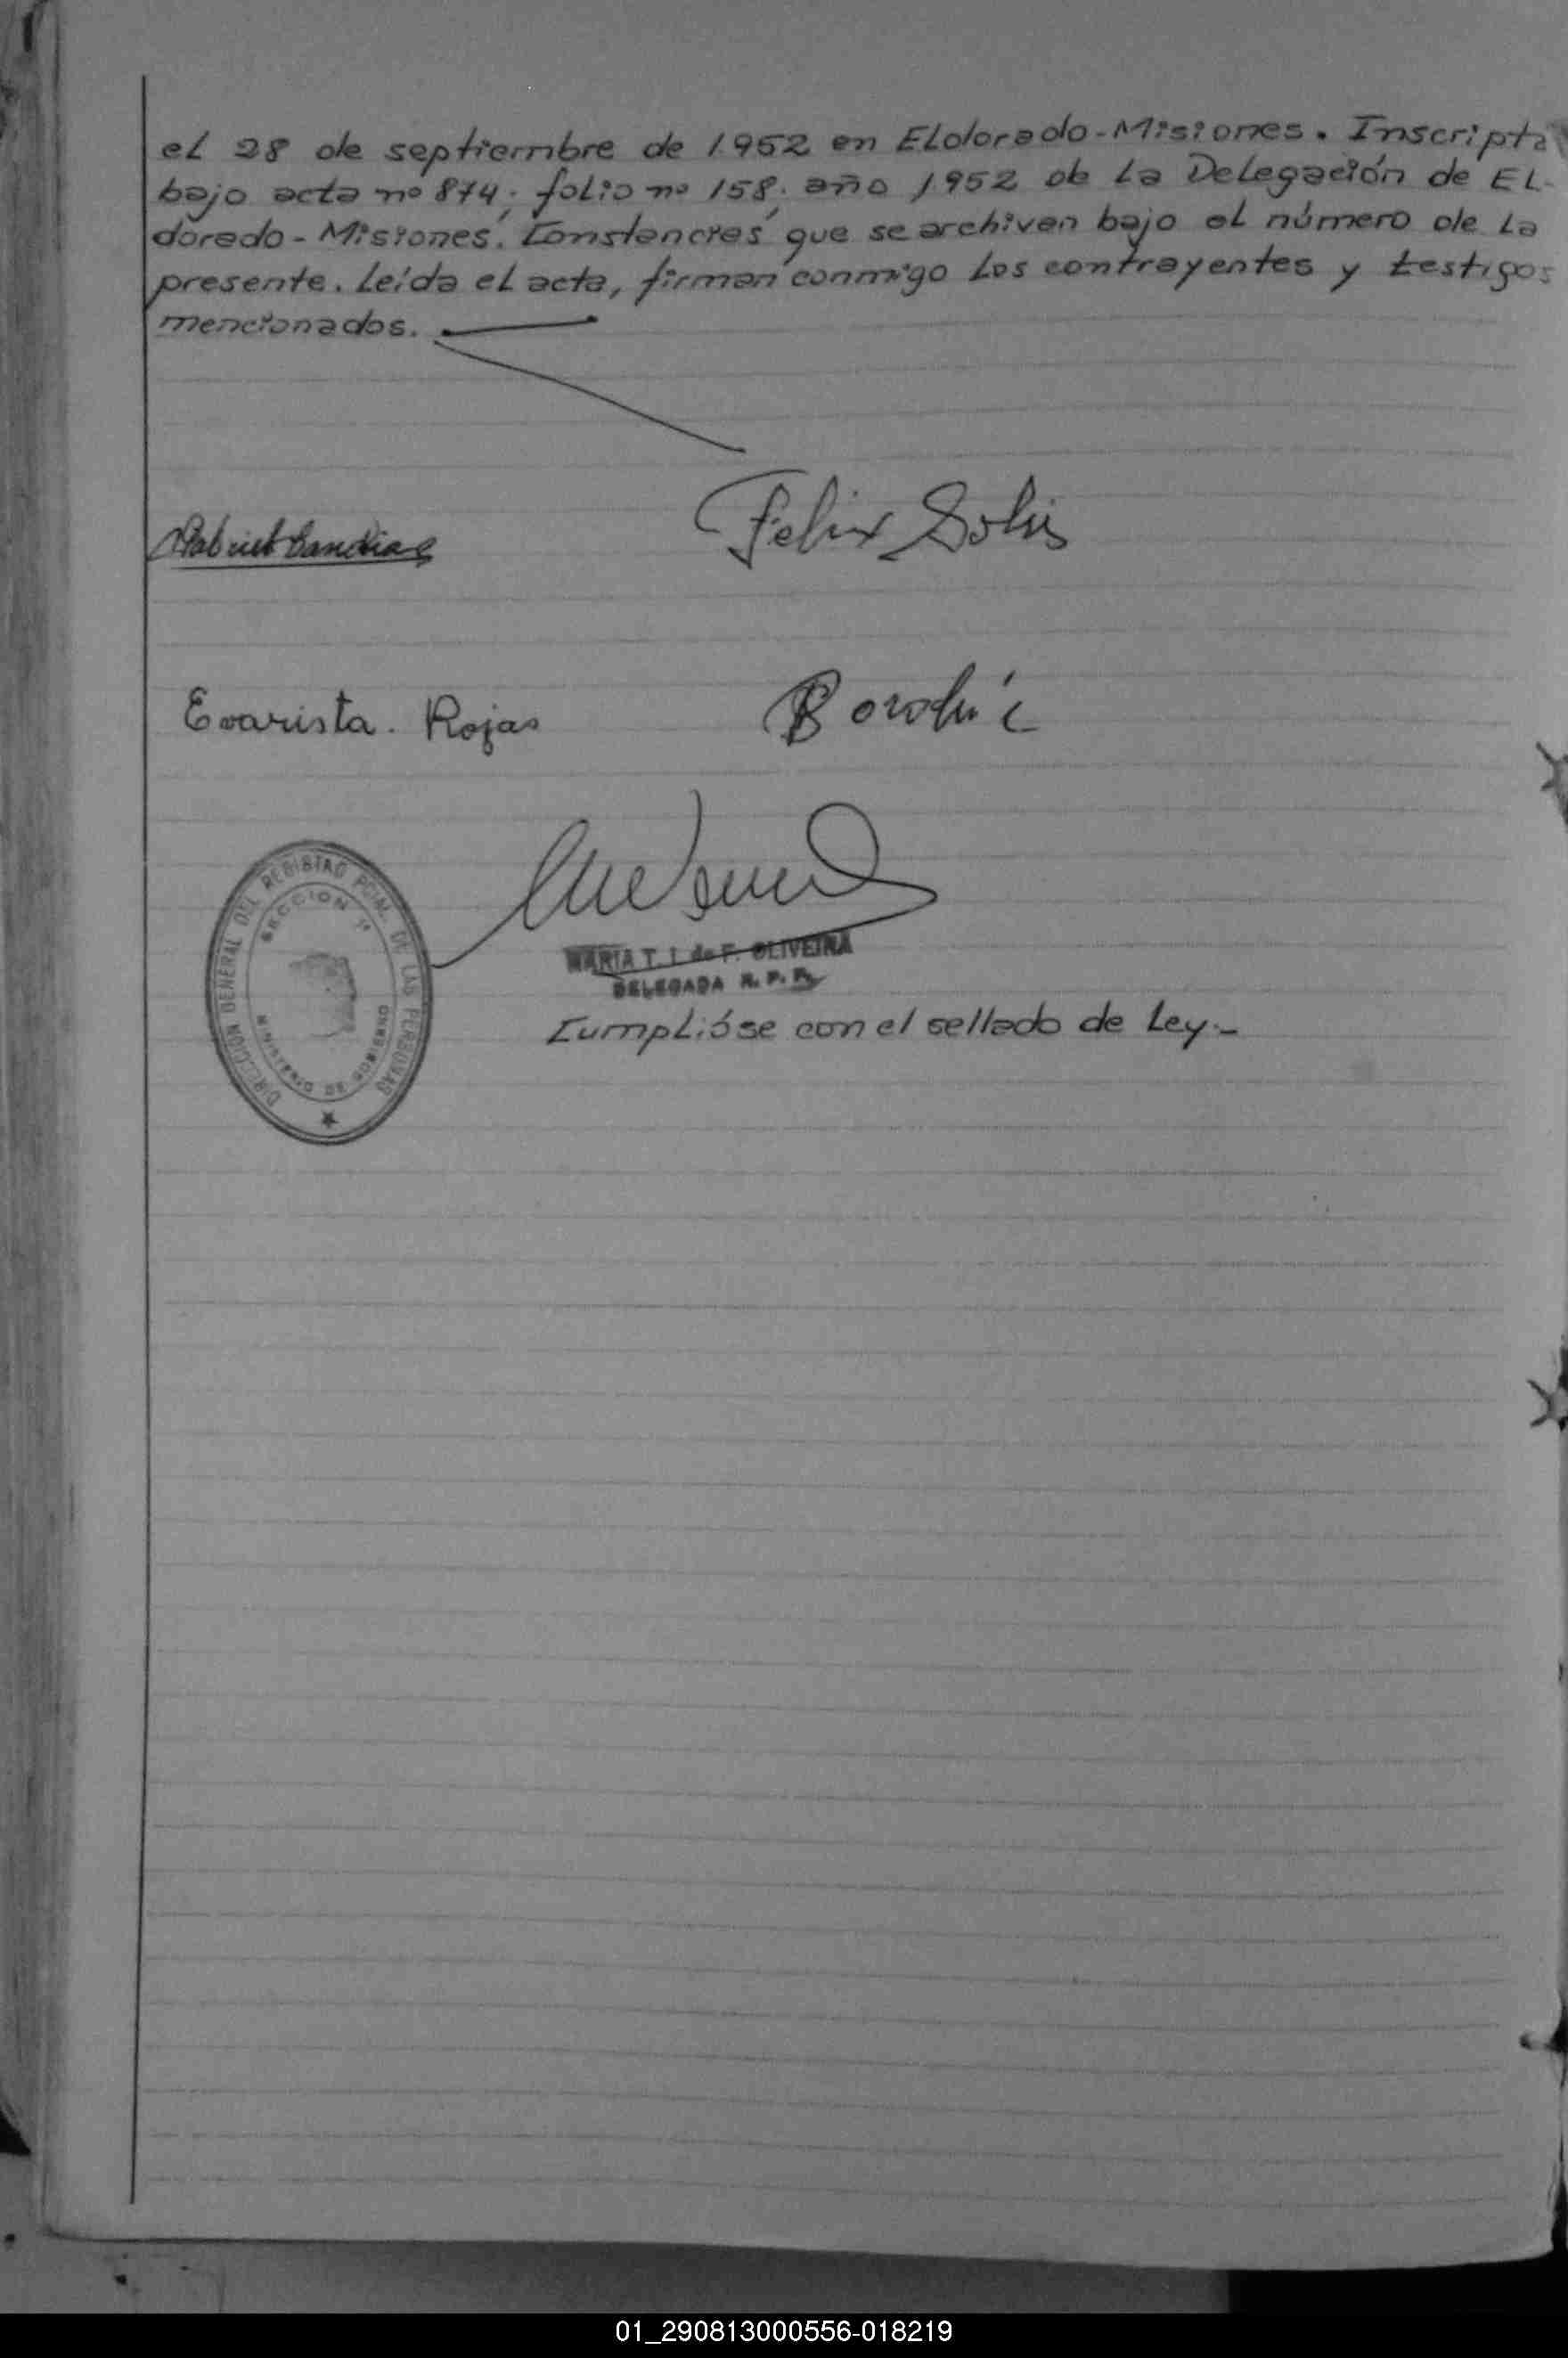 el 28 de septiembre de 1952 en Eldorado-Misiones. Inscripta
bajo acta nº 874; folio nº 158; año 1952 de la Delegación de El-
dorado-Misiones. Constancias que se archivan bajo el número de la
presente. Leída el acta, firman conmigo los contrayentes y testigos
mencionados.
Felix Solis
Gabriel
Evarista. Rojas
DIRECCION GENERAL DEL REGISTRO PCIAL. DE LAS PERSONAS
SECCION 1ª
MINISTERIO DE GOBIERNO
MARIA T. I. de F. OLIVEIRA
DELEGADA R. P. P.
Cumplióse con el sellado de Ley.-
01_290813000556-018219